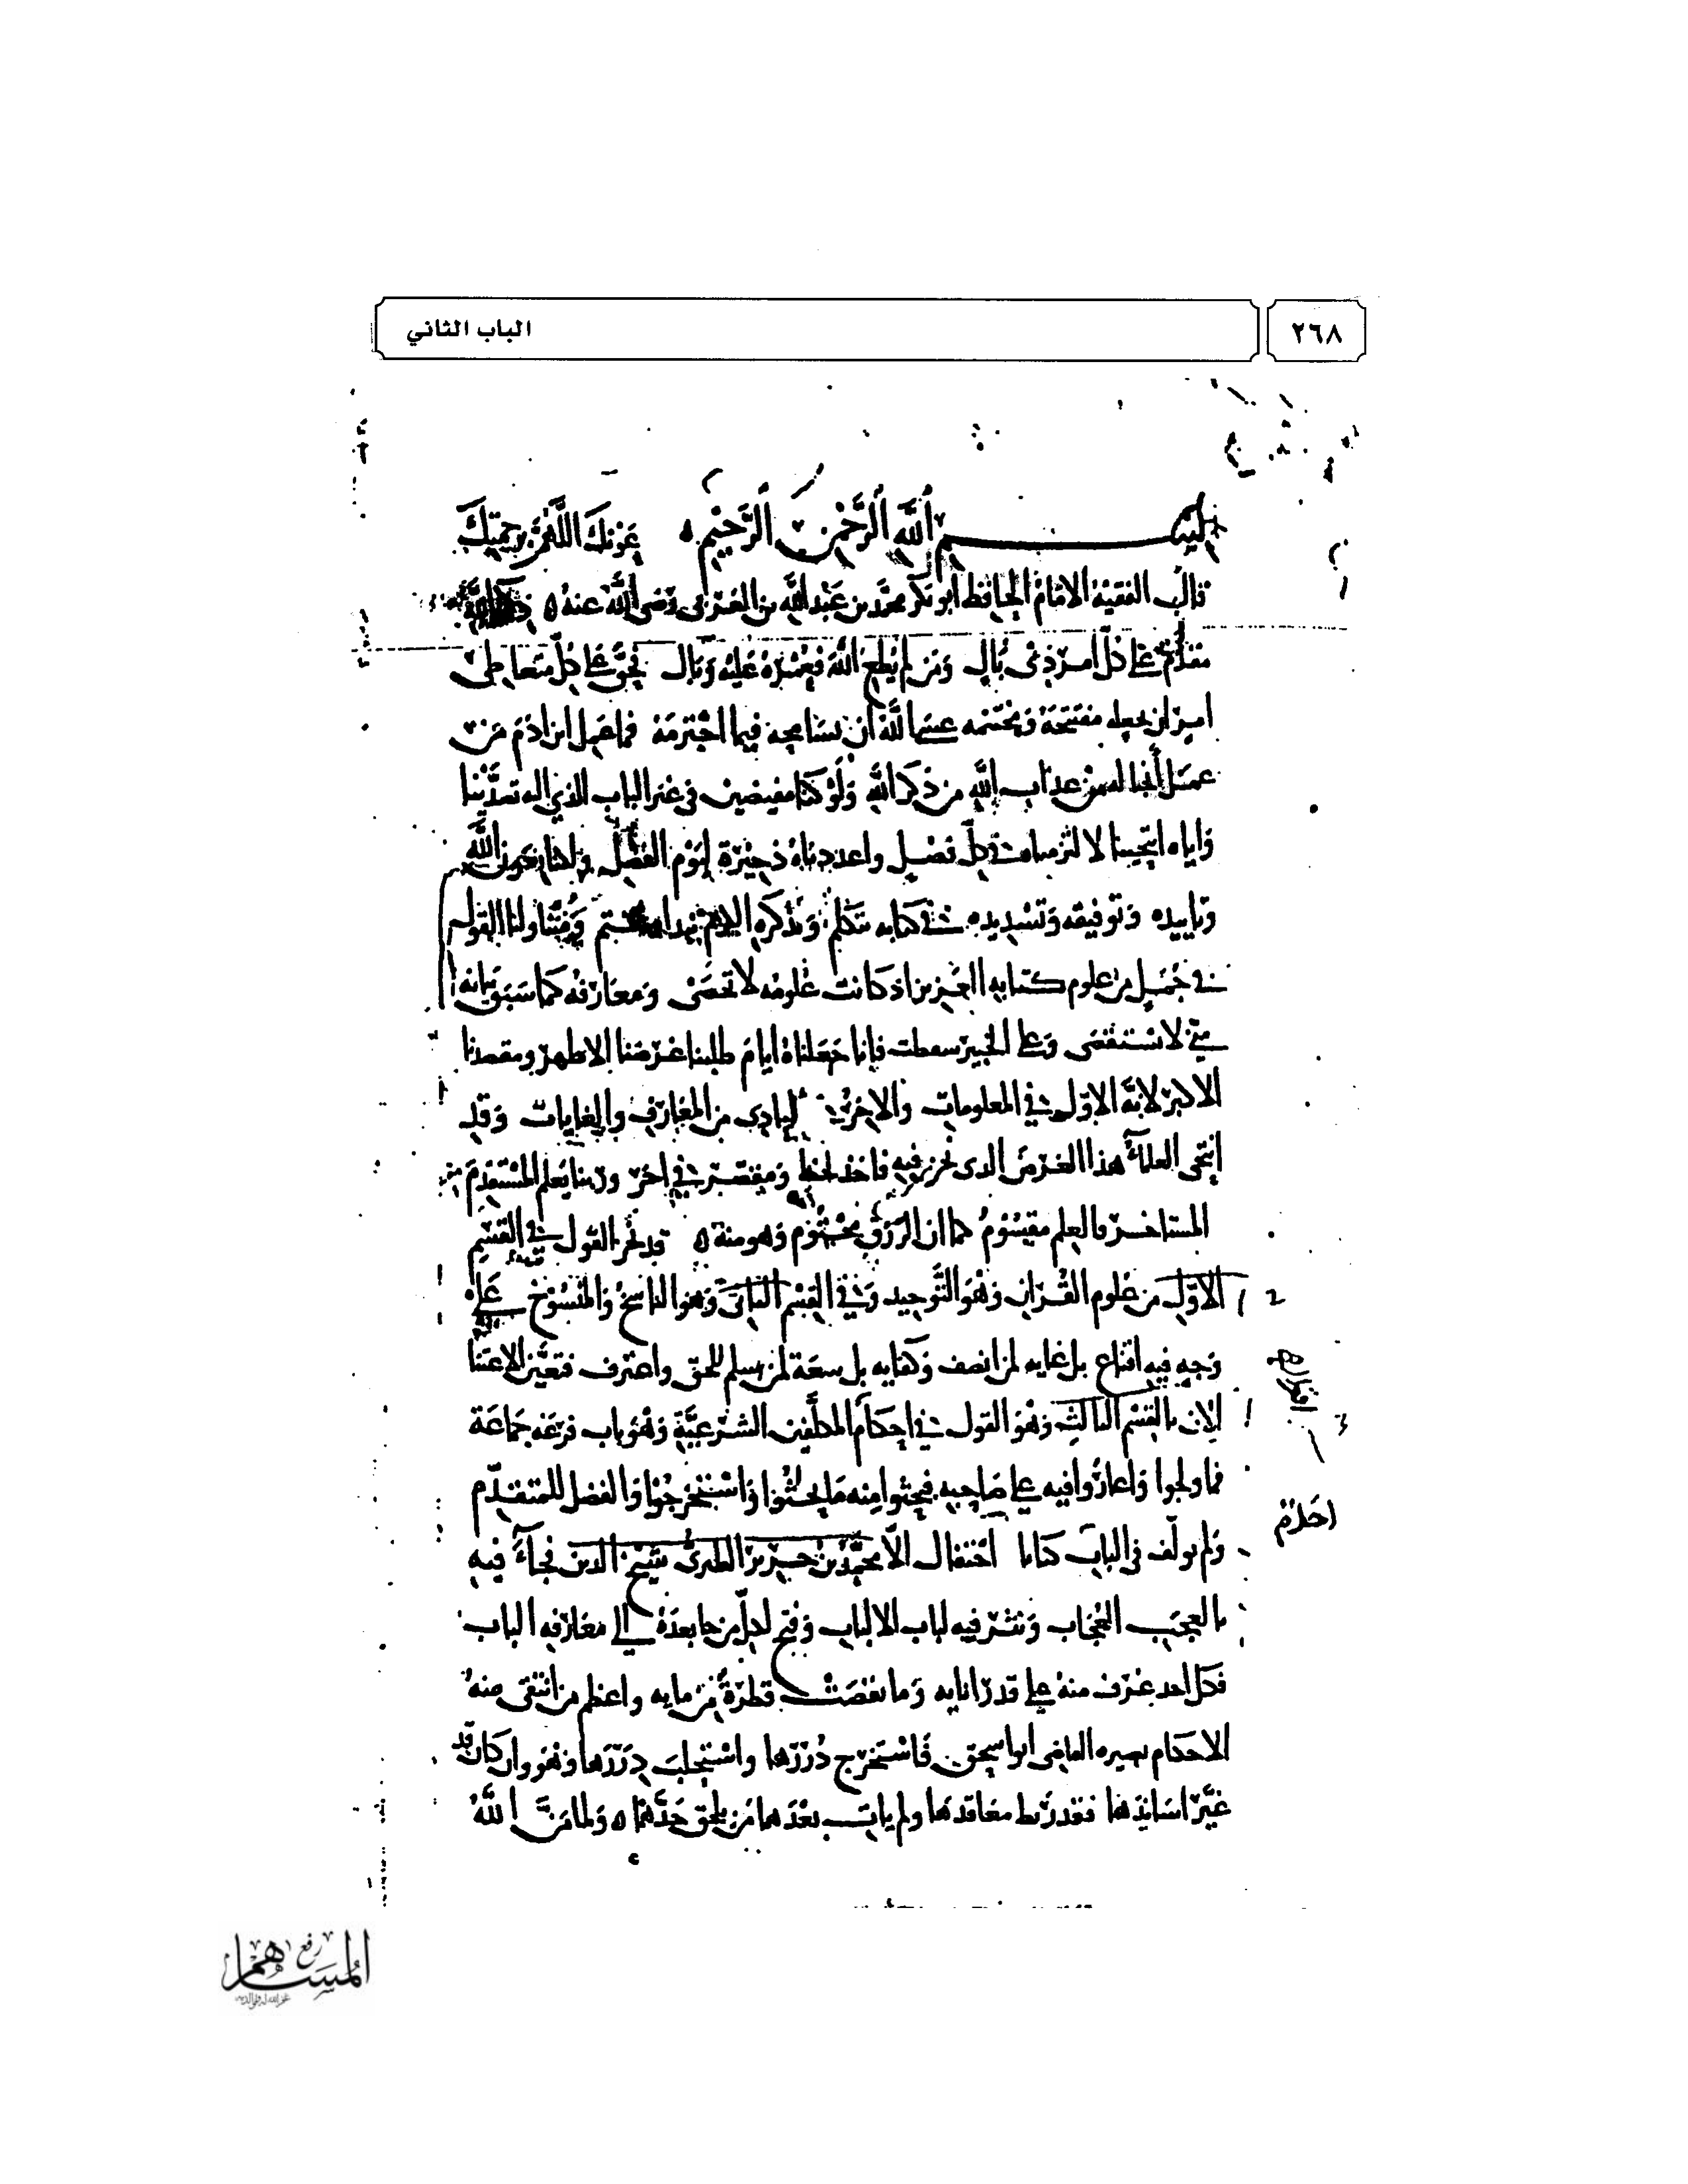 ٢٦٨
الباب الثاني
بسم الله الرحمن الرحيم عونك اللهم برحمتك
قال الفقيه الامام الحافظ ابو بكر محمد بن عبد الله بن العربي رضي الله عنه ذكر الله
مقدم على كل امر ذي بال ومن لم يطع الله فعمره عليه وبال فحق على كل متعاطي
امر ان يجعله مفتتحه ومختتمه عسى الله ان يسامحه فيما اجترمه فما عمل ابن ادم من
عمل أنجا له من عذاب الله من ذكر الله ولو كنا مفيضين في غير الباب الذي اله تصدينا
واياه انتحينا لالتزمناه في كل فصل واعددناه ذخيرة ليوم الفصل ولكنا بعون الله
وتاييده وتوفيقه وتسديده في كتابه نتكلم وبذكره
في جمل من علوم كتابه العزيز اذ كانت علومه لا تحصى ومعارفه كما سبق بيانه
لا تستقصى وعلى الخبير سقطت فإنا جعلناه ايام طلبنا غرضنا الاظهر ومقصدنا
الاكبر لانه الاول في المعلومات والاخر المبادي من المعارف والغايات وقد
انتحى العلماء هذا الغرض الذي نحن فيه فاخذ لحظا ومقصر في اخر وربنا يعلم المستقدم من
المستاخر والعلم مقسوم كما ان الرزق محتوم وهو منه قد نجز القول في القسم
الاول من علوم القران وهو التوحيد وفي القسم الثاني وهو الناسخ والمنسوخ على
وجه فيه اقناع بل غايه لمن انصف وكفايه بل سعة لمن سلم للحق واعترف فتعين الاعتنا
الان بالقسم الثالث وهو القول في احكام المكلفين الشرعية وهو باب قرعه جماعة
فما ولجوا واغاروا فيه على صاحبه فبحثوا منه ما بحثوا واستخرجوا والفضل للمتقدم
ولم يولف في الباب كتابا احتفال الا محمد بن جرير الطبري شيخ الدين فجاء فيه
بالعجب العجاب ونثر فيه لباب الالباب وفتح لكل من جا بعده الى معارفه الباب
فكل احد غرف منه على قدر انايه وما نقصت قطرة من مايه واعظم من انتقى منه
الاحكام بصيره القاضي ابو اسحق فاستخرج دررها واستجلب دررها وهو وان كان قد
غير اسانيدها فقد ربط معاقدها ولم يات بعدهما من يلحق حدهما ولما من الله
احكام
المساهم
رفع
غفر الله له ولوالديه